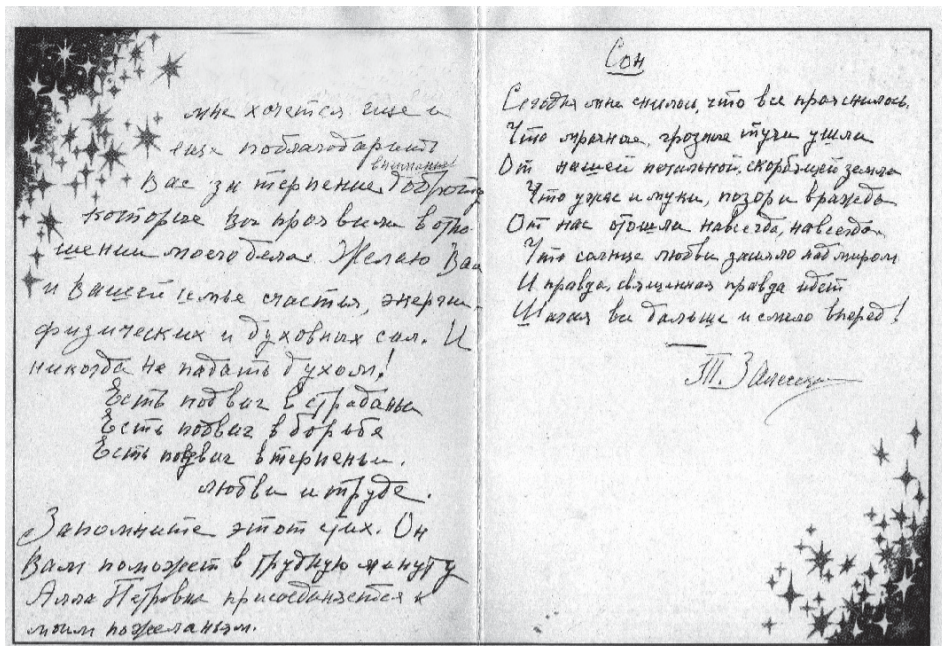 мне хочется еще и
еще поблагодарить
внимание
Вас за терпение доброту
которые Вы проявили в отно-
шении моего дела. Желаю Вам
и Вашей семье счастья, энергии
физических и духовных сил. И
никогда не падать духом!
Есть подвиг в страданьи
Есть подвиг в борьбе
Есть подвиг в терпеньи.
любви и труде.
Запомните этот стих. Он
Вам поможет в трудную минуту
Алла Петровна присоединяется к
моим пожеланьям.
Сон
Сегодня мне снилось, что все прояснилось,
Что мрачные, грозные тучи ушли
От нашей печальной, скорбящей земли
Что ужас и муки, позор и вражда
От нас отошли навсегда, навсегда.
Что солнце любви засияло над миром
И правда, священная правда идет
Шагая все дальше и смело вперед!
Т.